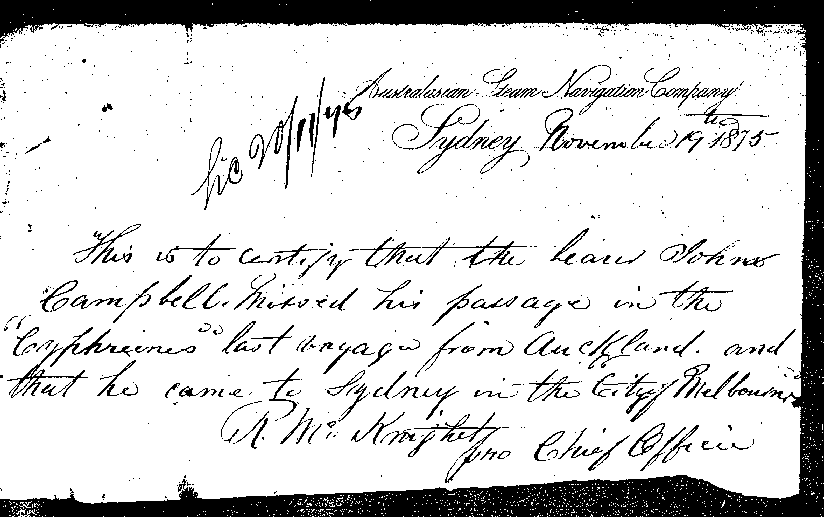 Australasian Steam Navigation Company
Sydney November 19th 1875
20/11/75
This is to certify that the bearer John
Campbell. Missed his passage in the
"Cyphrenes" last voyage from Auckland. and
that he came to Sydney in the "City of Melbourne"
R. McKnight
pro Chief Officer